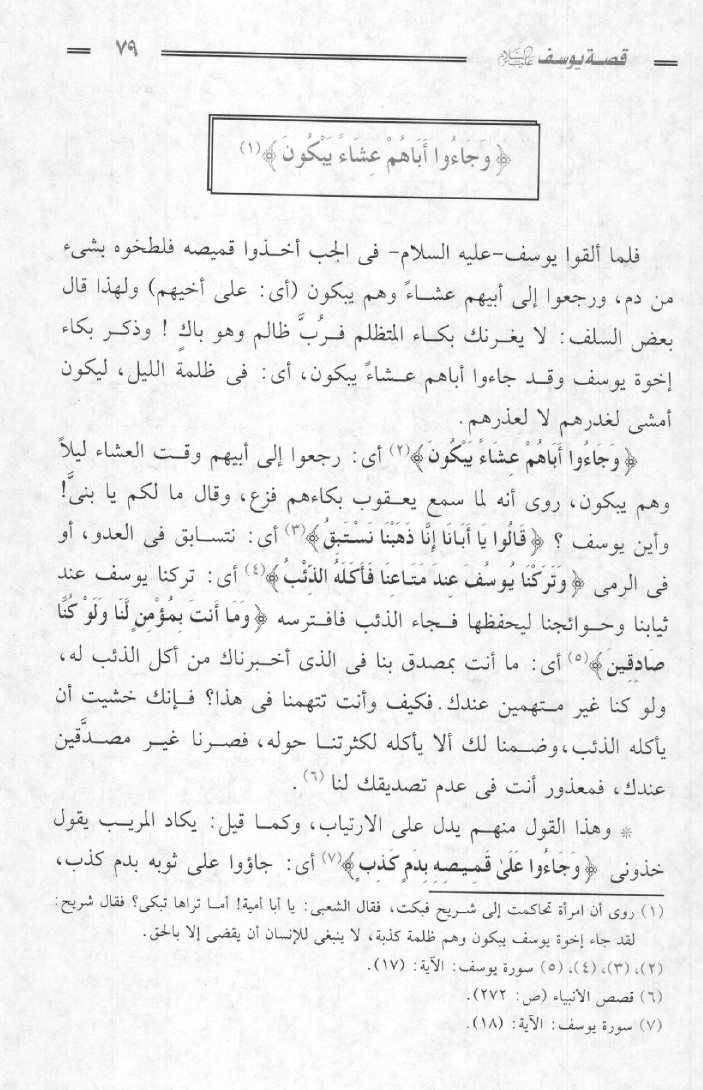 قصة يوسف عليه السلام
٧٩
﴿ وَجَاءُوا أَبَاهُمْ عِشَاءً يَبْكُونَ ﴾(١)
فلما ألقوا يوسف-عليه السلام- فى الجب أخذوا قميصه فلطخوه بشىء
من دم، ورجعوا إلى أبيهم عشاءً وهم يبكون (أى: على أخيهم) ولهذا قال
بعض السلف: لا يغرنك بكاء المتظلم فرُبَّ ظالم وهو باكٍ ! وذكر بكاء
إخوة يوسف وقد جاءوا أباهم عشاءً يبكون، أى: فى ظلمة الليل، ليكون
أمشى لغدرهم لا لعذرهم.
﴿ وَجَاءُوا أَبَاهُمْ عِشَاءً يَبْكُونَ ﴾(٢) أى: رجعوا إلى أبيهم وقت العشاء ليلاً
وهم يبكون، روى أنه لما سمع يعقوب بكاءهم فزع، وقال ما لكم يا بنىَّ!
وأين يوسف ؟ ﴿ قَالُوا يَا أَبَانَا إِنَّا ذَهَبْنَا نَسْتَبِقُ ﴾(٣) أى: نتسابق فى العدو، أو
فى الرمى ﴿ وَتَرَكْنَا يُوسُفَ عِندَ مَتَاعِنَا فَأَكَلَهُ الذِّئْبُ ﴾(٤) أى: تركنا يوسف عند
ثيابنا وحوائجنا ليحفظها فجاء الذئب فافترسه ﴿ وَمَا أَنتَ بِمُؤْمِنٍ لَّنَا وَلَوْ كُنَّا
صَادِقِينَ ﴾(٥) أى: ما أنت بمصدق بنا فى الذى أخبرناك من أكل الذئب له،
ولو كنا غير متهمين عندك. فكيف وأنت تتهمنا فى هذا؟ فإنك خشيت أن
يأكله الذئب، وضمنا لك ألا يأكله لكثرتنا حوله، فصرنا غير مصدَّقين
عندك، فمعذور أنت فى عدم تصديقك لنا (٦).
* وهذا القول منهم يدل على الارتياب، وكما قيل: يكاد المريب يقول
خذونى ﴿ وَجَاءُوا عَلَىٰ قَمِيصِهِ بِدَمٍ كَذِبٍ ﴾(٧) أى: جاؤوا على ثوبه بدم كذب،
(١) روى أن امرأة تحاكمت إلى شريح فبكت، فقال الشعبى: يا أبا أمية! أما تراها تبكى؟ فقال شريح:
لقد جاء إخوة يوسف يبكون وهم ظلمة كذبة، لا ينبغى للإنسان أن يقضى إلا بالحق.
(٢)، (٣)، (٤)، (٥) سورة يوسف: الآية: (١٧).
(٦) قصص الأنبياء (ص: ٢٧٢).
(٧) سورة يوسف: الآية: (١٨).